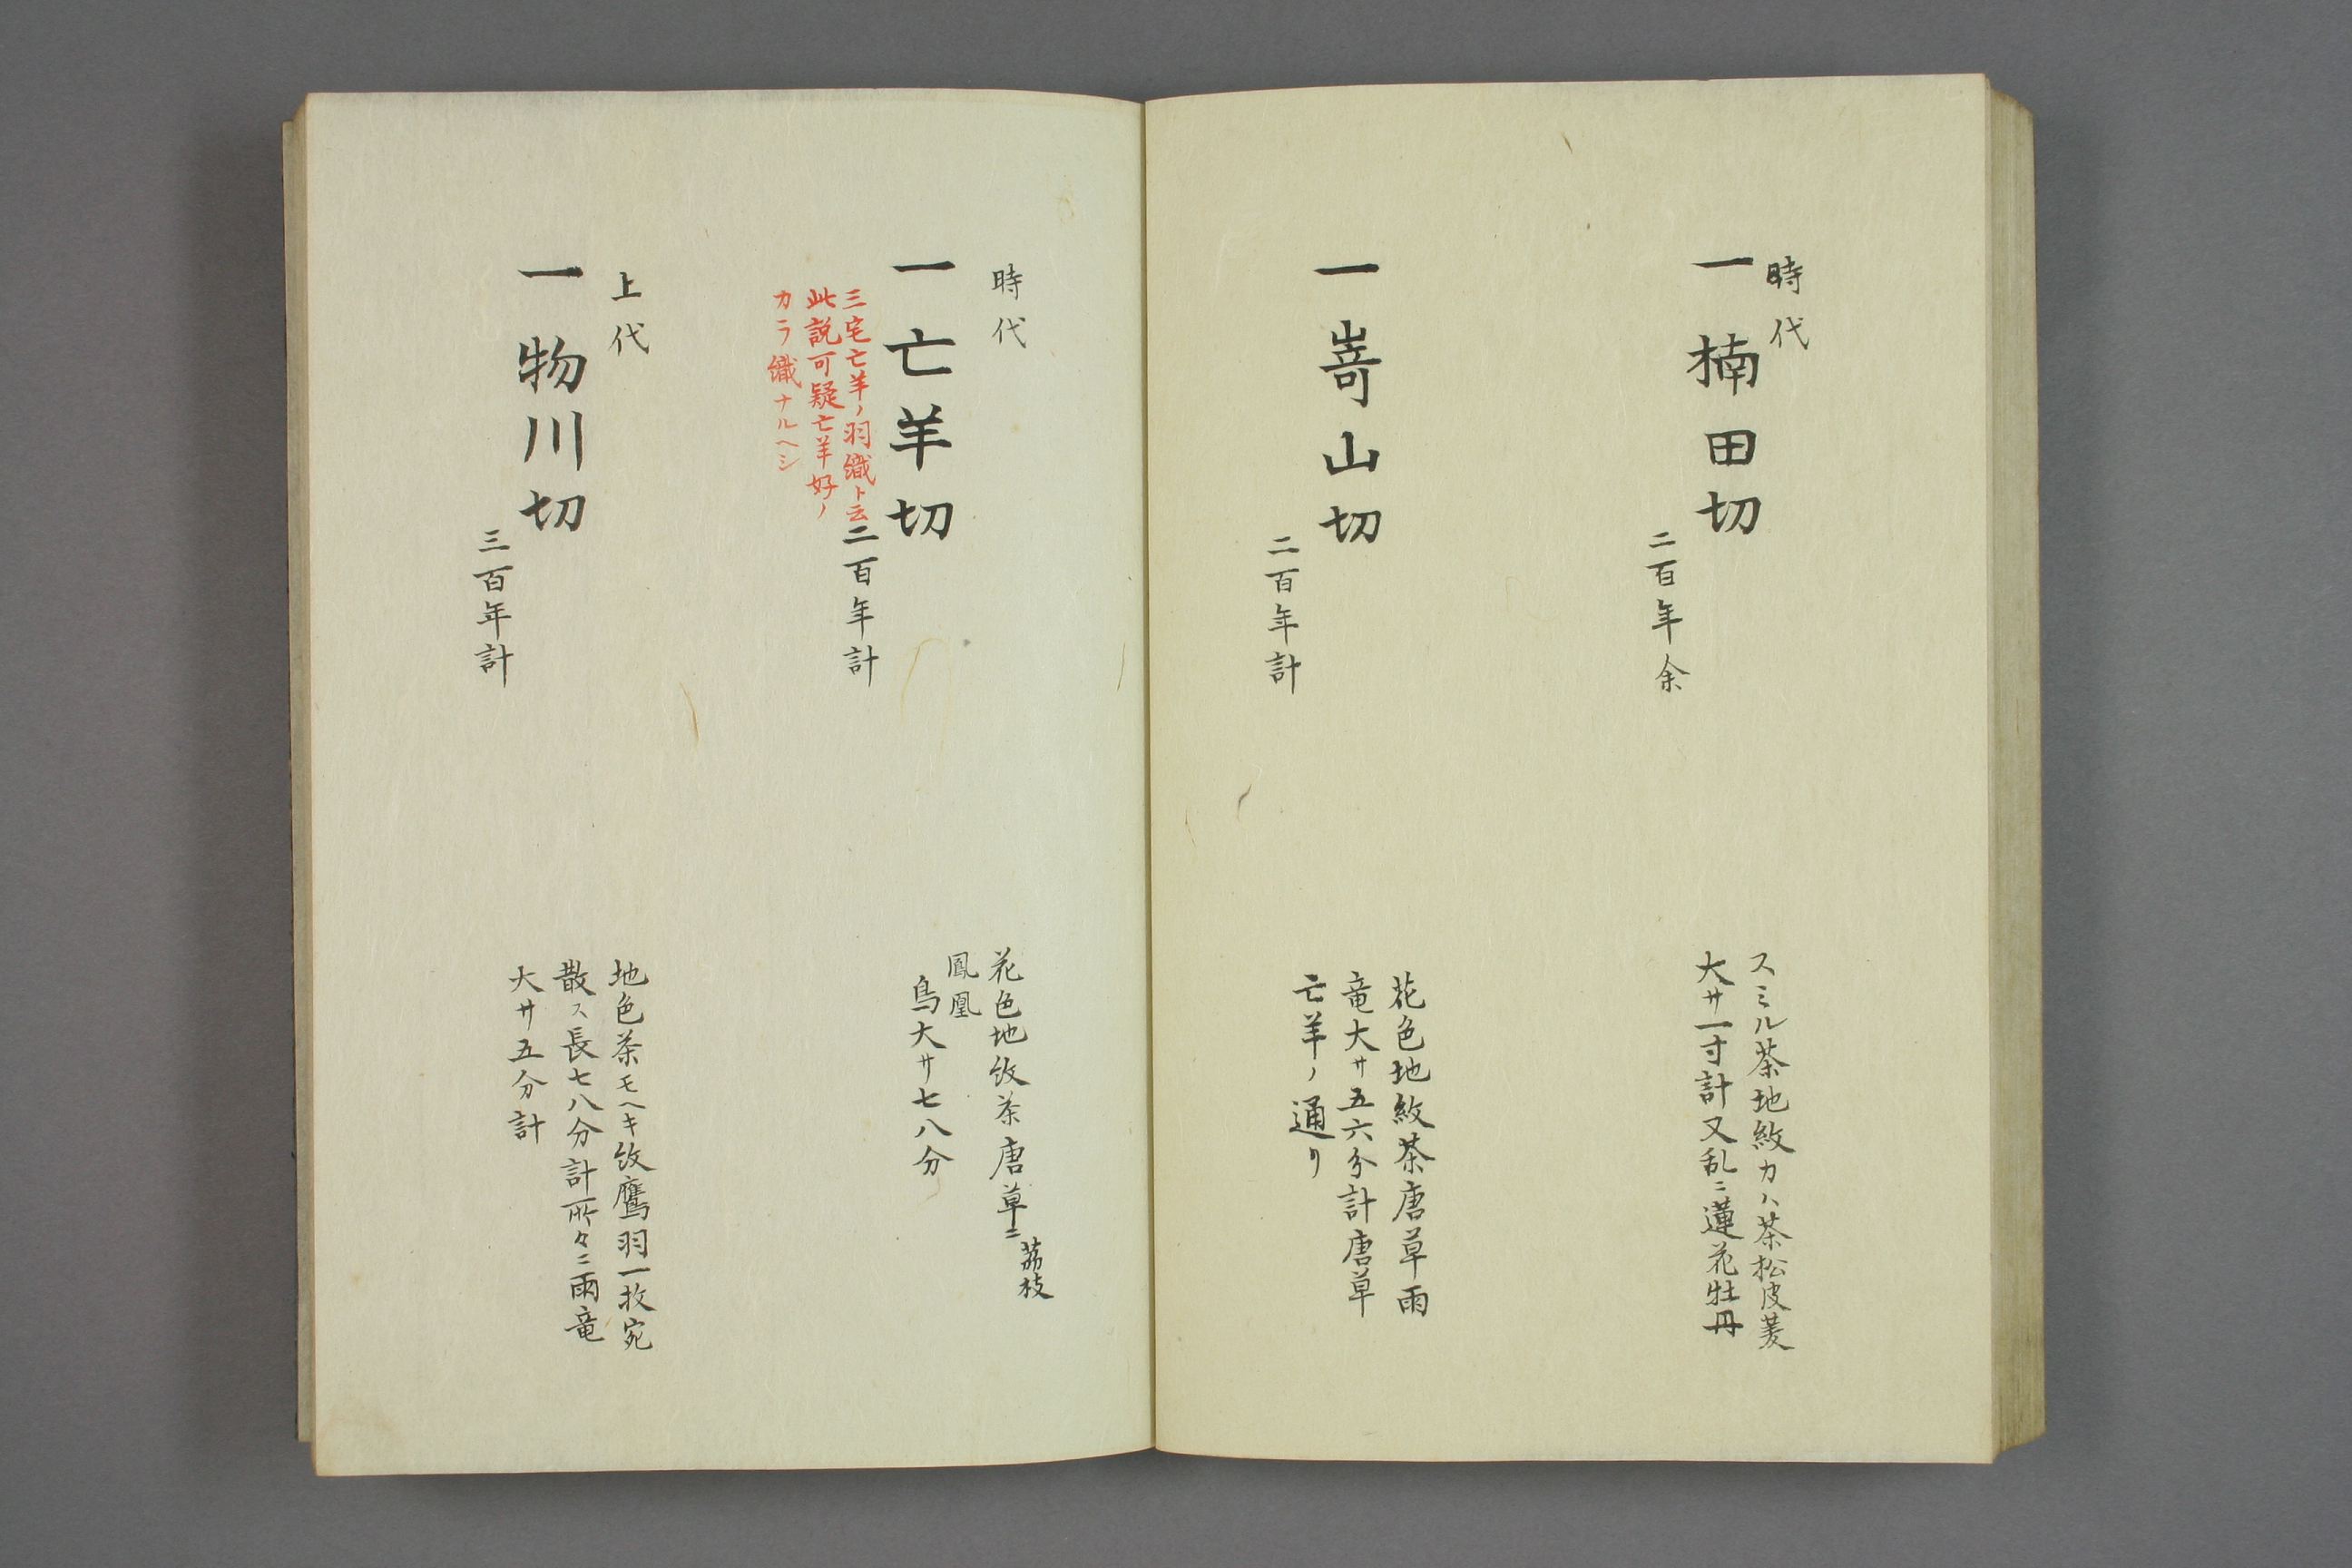 時代
一 楠田切
二百年余
スミル茶地紋カハ茶松皮菱
大サ一寸計又乱ニ蓮花牡丹
一 嵜山切
二百年計
花色地紋茶唐草雨
竜大サ五六分計唐草
亡羊ノ通リ
時代
一 亡羊切
三宅亡羊ノ羽織ト云
此説可疑亡羊好ノ
カラ織ナルヘシ
二百年計
花色地紋茶唐草ニ茘枝
鳳凰
鳥大サ七八分
上代
一 物川切
三百年計
地色茶モヘキ紋鷹羽一枚宛
散ス長七八分計所々ニ雨竜
大サ五分計